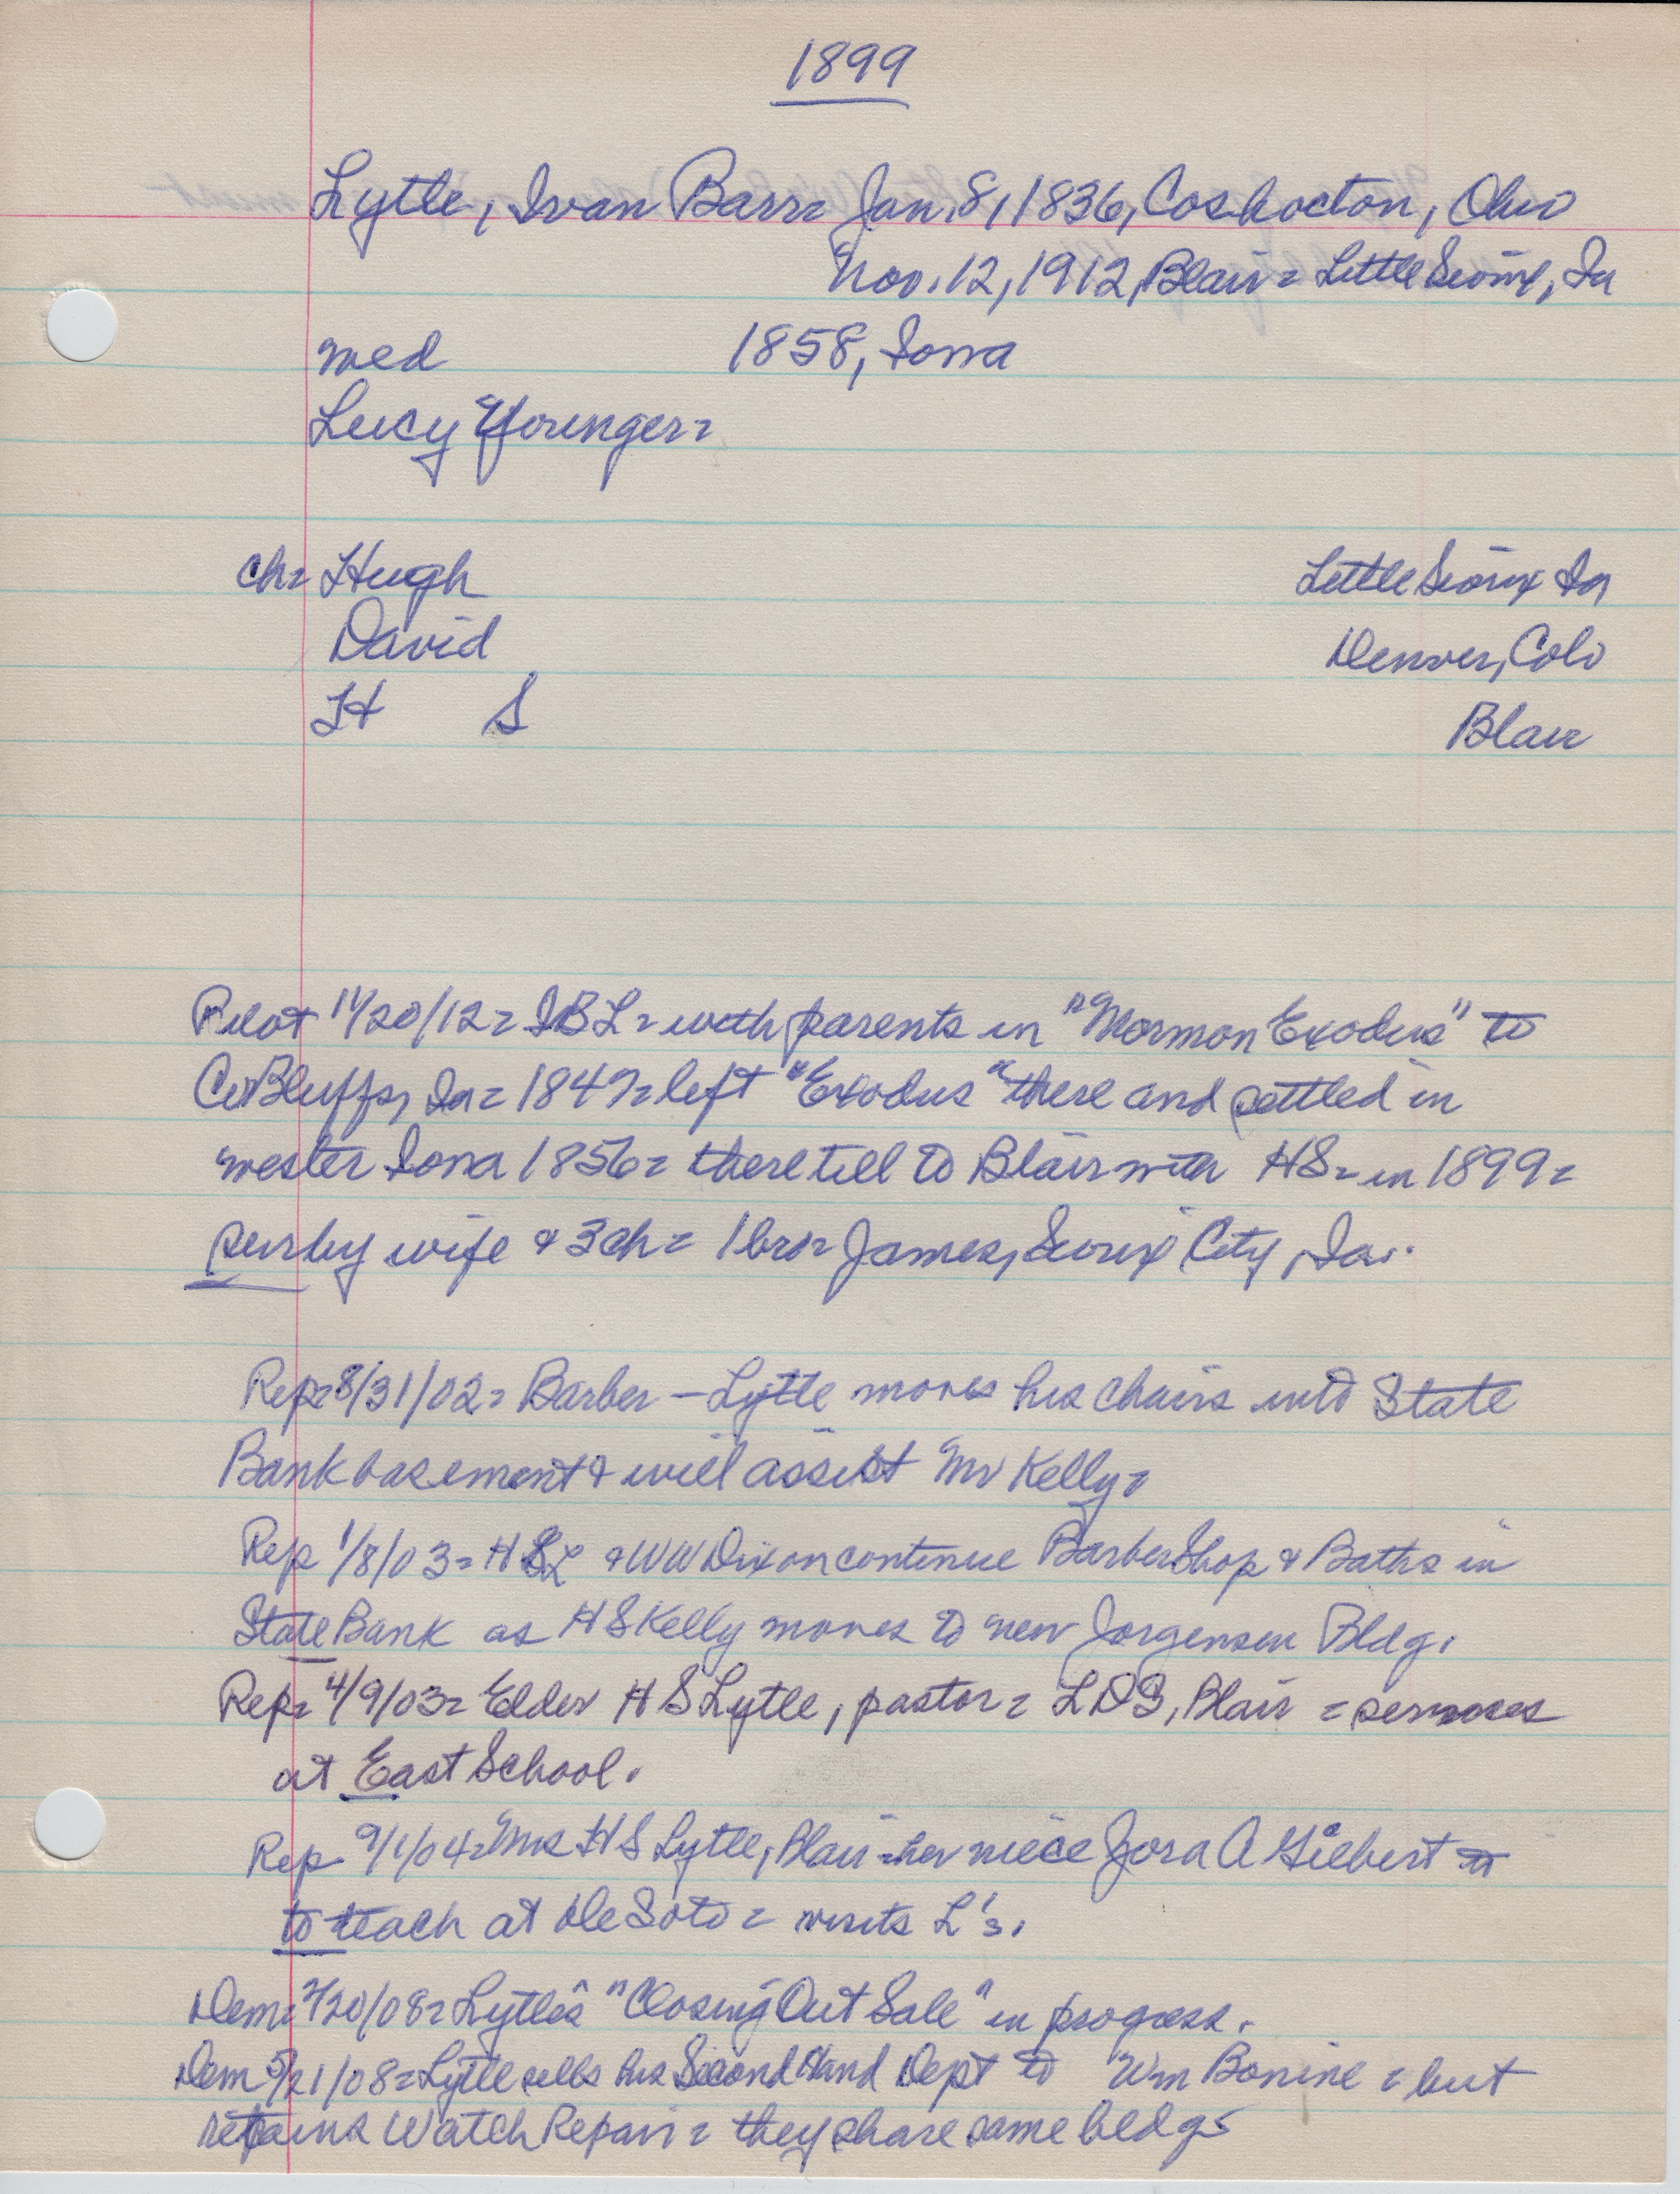 1899
Lytle, Ivan Barr= Jan. 8, 1836, Coshocton, Ohio
Nov. 12, 1912, Blair= Little Sioux, Ia
wed 1858, Iowa
Lucy Younger=
ch= Hugh Little Sioux Ia
David Denver, Colo
H S Blair
Pilot 11/20/12= IBL= with parents in "Mormon Exodus" to
Co Bluffs, Ia= 1847= left "Exodus" there and settled in
wester Iowa 1856= there till to Blair with HS= in 1899=
surby wife & 3 ch= 1 bro= James, Sioux City, Ia.
Rep= 8/31/02= Barber — Lytle moves his chairs into State
Bank basement & will assist Mr Kelly=
Rep 1/8/03= HSL & WW Dixon continue Barber Shop & Baths in
State Bank as H S Kelly moves to new Jorgensen Bldg.
Rep= 4/9/03= Elder H S Lytle, pastor= LDS, Blair = services
at East School.
Rep 9/1/04= Mrs H S Lytle, Blair= her niece A Gilbert to
to teach at De Soto = visits L's.
Dem= 2/20/08= Lytle's "Closing Out Sale" in progress.
Dem 5/21/08= Lytle sells his Second Hand Dept to Wm Bonine = but
retains Watch Repair= they share same bldgs